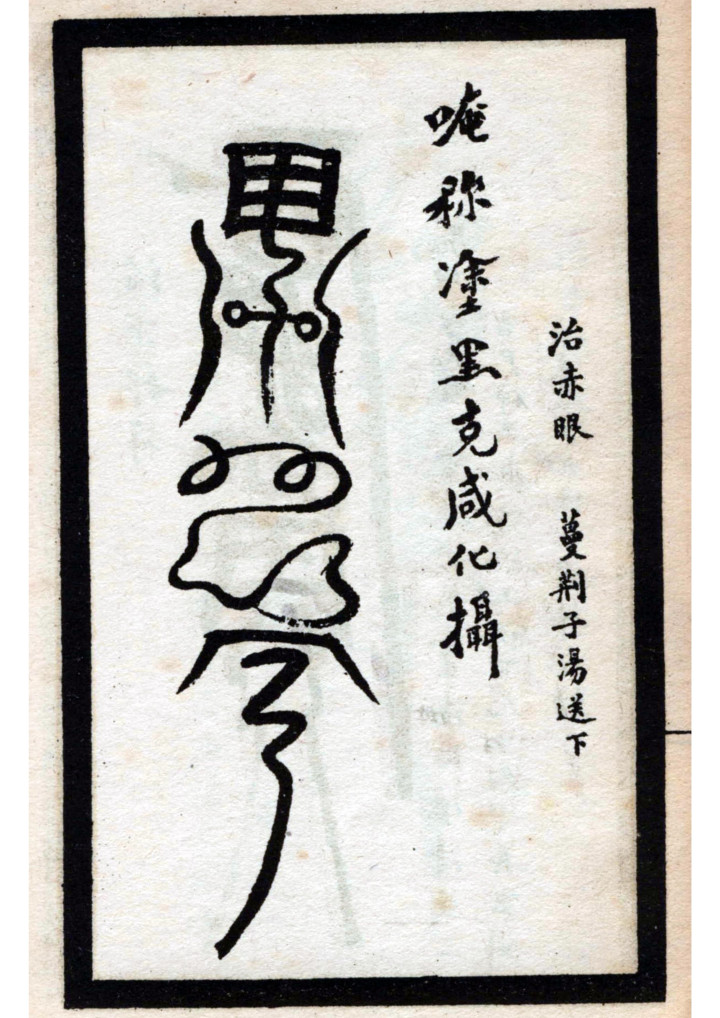 治赤眼 蔓荆子湯送下
唵称塗黑克咸化攝